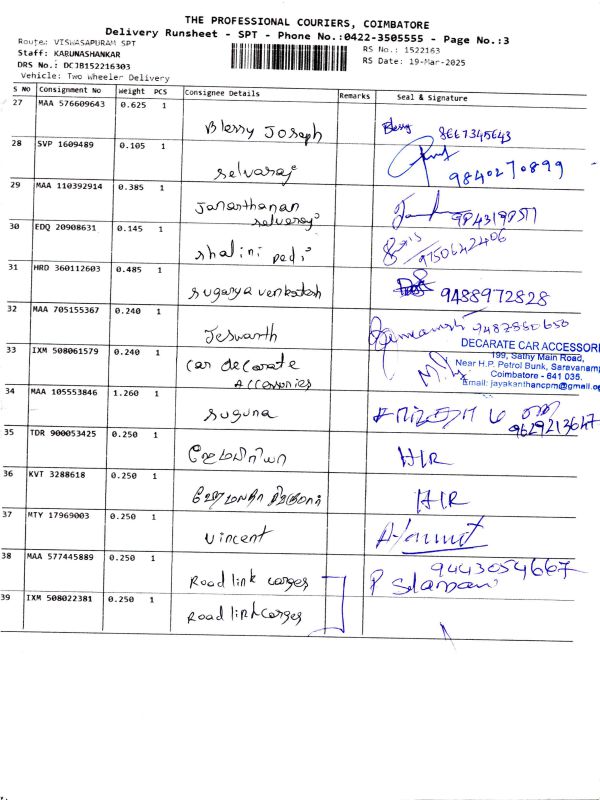 THE PROFESSIONAL COURIERS, COIMBATORE
Delivery Runsheet - SPT - Phone No.:0422-3505555 - Page No.:3
Route: VISWASAPURAM SPT
RS No.: 1522163
Staff: KARUNASHANKAR
RS Date: 19-Mar-2025
DRS No.: DCJB152216303
Vehicle: Two Wheeler Delivery
S No Consignment No Weight PCS Consignee Details Remarks Seal & Signature
27 MAA 576609643 0.625 1 Blessy Joseph Blessy 8667345643
28 SVP 1609489 0.105 1 Selvaraj 9840270899
29 MAA 110392914 0.385 1 Jananthanan
selvaraj
30 EDQ 20908631 0.145 1 shalini pedi 9750642406
31 HRD 360112603 0.485 1 suganya venkatesh 9488972828
32 MAA 705155367 0.240 1 Jeswanth
33 IXM 508061579 0.240 1 car decorate
Accessories
DECARATE CAR ACCESSORI
199, Sathy Main Road,
Near H.P. Petrol Bunk, Saravanamp
Coimbatore - 641 035.
Email: jayakanthancpm@gmail.co
34 MAA 105553846 1.260 1 suguna 9629213647
35 TDR 900053425 0.250 1 H/R
36 KVT 3288618 0.250 1 H/R
37 MTY 17969003 0.250 1 vincent
38 MAA 577445889 0.250 1 Road link carges 9443054667
39 IXM 508022381 0.250 1 Road link carges